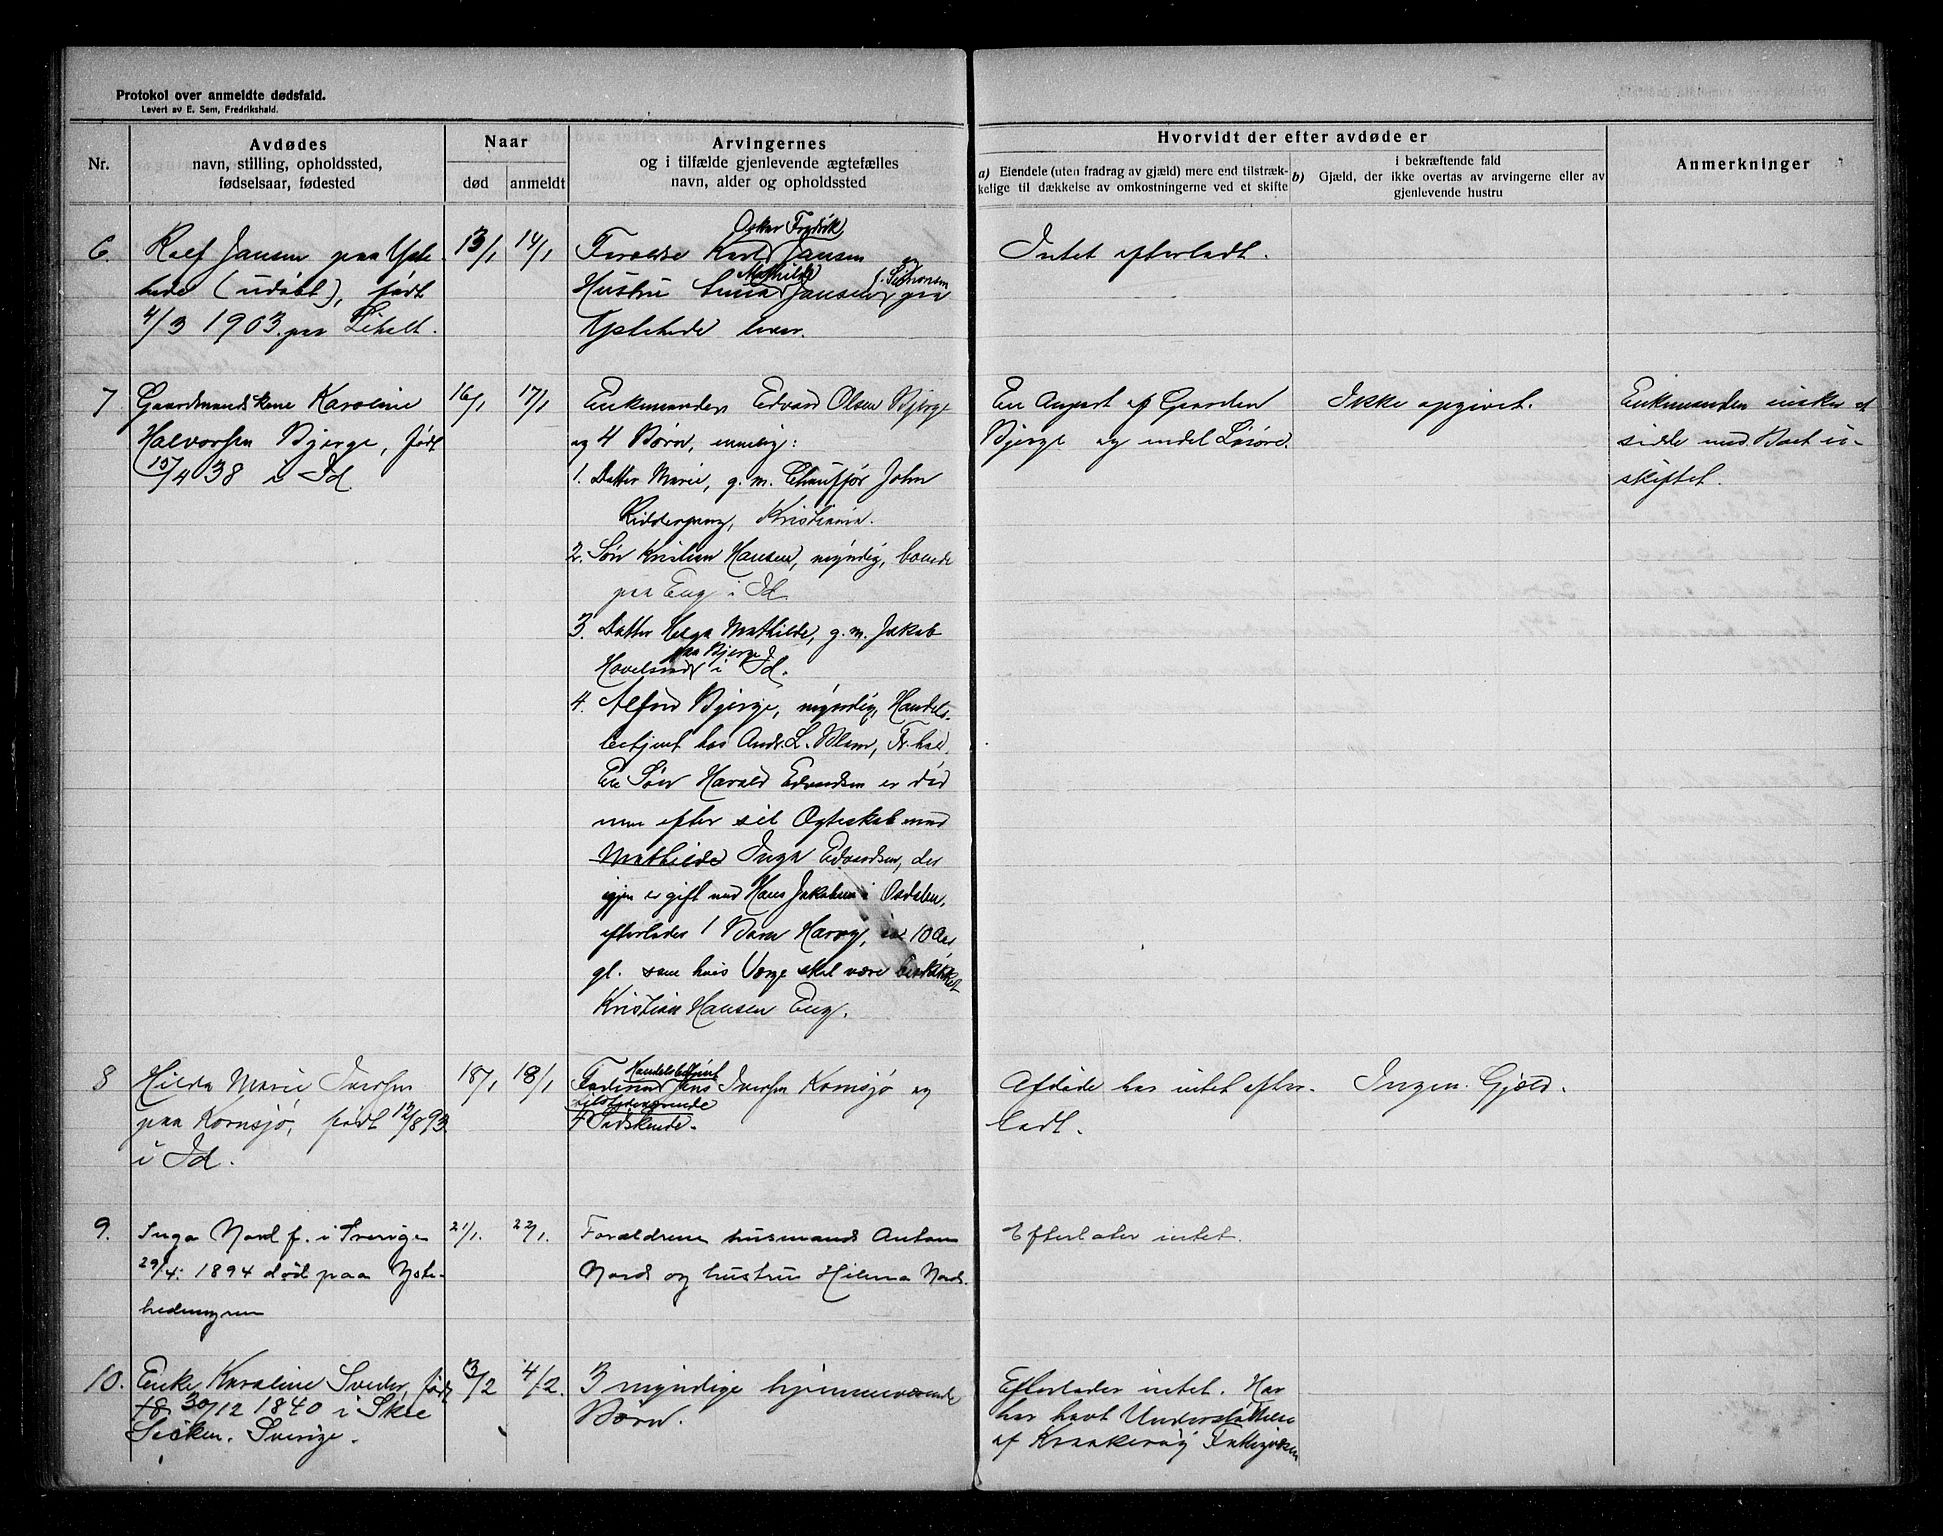 Protokol over anmeldte dødsfald.
Levert av E. Sem, Fredrikshald.
Nr.
Avdødes
navn, stilling, opholdssted,
fødselsaar, fødested
Naar
død
anmeldt
Arvingernes
og i tilfælde gjenlevende ægtefælles
navn, alder og opholdssted
Hvorvidt der efter avdøde er
a) Eiendele (uten fradrag av gjæld) mere end tilstræk-
kelige til dækkelse av omkostningerne ved et skifte
i bekræftende fald
b) Gjæld, der ikke overtas av arvingerne eller av
gjenlevende hustru
Anmerkninger
6. Rolf Jansen paa Yste-
hede (udøbt), født
4/3 1903 paa
13/1
14/1
Oskar Fredrik
Forældre Karl Jansen og
Mathilde f. Simonsen
Hustru Jansen paa
Ystehede lever.
Intet efterladt.
7 Gaardmandskone Karoline
Halvorsen Bjerge, født
15/4 38 i Id
16/1
17/1
Enkemanden Edvard Olsen Bjerge
og 4 Børn, nemlig:
1. Datter Marie, g. m. Chauffør John
Kristiania.
2. Søn Kristian Hansen, myndig, boende
paa Eng i Id
3. Datter Helga Mathilde, g. m. Jakob
paa Bjerge
i Id.
4. Alfred Bjerge, myndig, Handels-
betjent hos Andr. L. Blom, Fr.hald,
En Søn Harald Edvardsen er død
men efter sit Ægteskab med
Mathilde Inga Edvardsen, der
igjen er gift med Hans Jakobsen i Osdalen,
efterlades 1 Barn 10 Aar
gl. som hvis Verge skal være beskikket
Kristian Hansen Eng.
En Anpart af Gaarden
Bjerge og endel Løsøre.
Ikke opgivet.
Enkemanden ønsker at
sidde med Boet u-
skiftet.
8 Hilda Marie Iversen
paa Kornsjø, født 12/8 93
i Id.
18/1
18/1
Handelsbetjent
Faderen Jens Iversen Kornsjø og
tilstedeværende
7 Sødskende.
Afdøde har intet efter-
ladt.
Ingen Gjæld.
9. Inga Nord f. i Sverige
29/4. 1894 død paa Yste-
hedemyren
21/1.
22/1.
Forældrene husmand Anton
Nord og hustru Hilma Nord.
Efterlater intet.
10. Enke Karoline født
18 30/12 1840 i Skee
Sverige.
3/2
4/2.
3 myndige hjemmeværende
Børn.
Efterlader intet. Har
har havt Understøttelse
af Kraakerøy Fattigvæsen